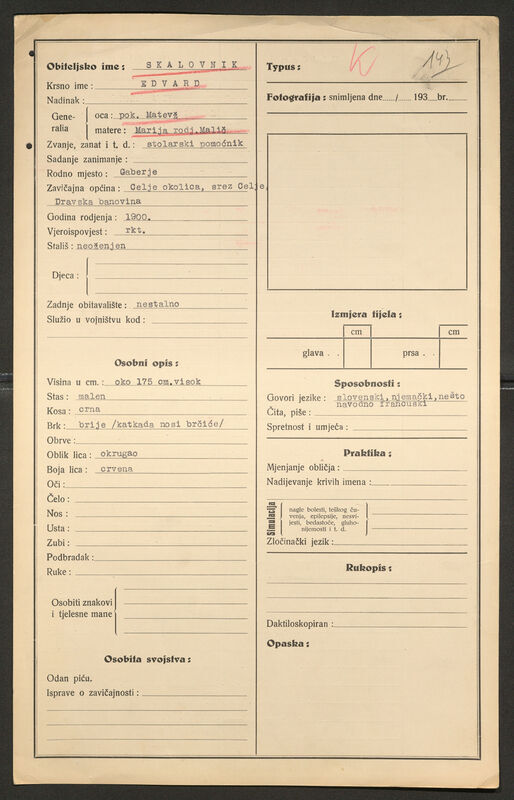 Obiteljsko ime : SKALOVNIK
Krsno ime : EDVARD
Nadinak :
Gene-
ralia
oca : pok. Matevž
matere : Marija rodj.Malič
Zvanje, zanat i t. d. : stolarski pomoćnik
Sadanje zanimanje :
Rodno mjesto : Gaberje
Zavičajna općina : Celje okolica, srez Celje,
Dravska banovina
Godina rodjenja : 1900.
Vjeroispovjest : rkt.
Stališ : neoženjen
Djeca :
Zadnje obitavalište : nestalno
Služio u vojništvu kod :
Osobni opis :
Visina u cm. : oko 175 cm.visok
Stas : malen
Kosa : crna
Brk : brije /katkada nosi brčiće/
Obrve :
Oblik lica : okrugao
Boja lica : crvena
Oči :
Čelo :
Nos :
Usta :
Zubi :
Podbradak :
Ruke :
Osobiti znakovi
i tjelesne mane
Osobita svojstva :
Odan piću.
Isprave o zavičajnosti :
K
143
Typus :
Fotografija : snimljena dne / 193 br.
Izmjera tijela :
cm cm
glava . . prsa . .
Sposobnosti :
Govori jezike : slovenski, njemački, nešto
navodno francuski
Čita, piše :
Spretnost i umjeća :
Praktika :
Mjenjanje obličja :
Nadijevanje krivih imena :
Simulacija
nagle bolesti, teškog ču-
venja, epilepsije, nesvi-
jesti, bedastoće, gluho-
nijemosti i t. d.
Zločinački jezik :
Rukopis :
Daktiloskopiran :
Opaska :